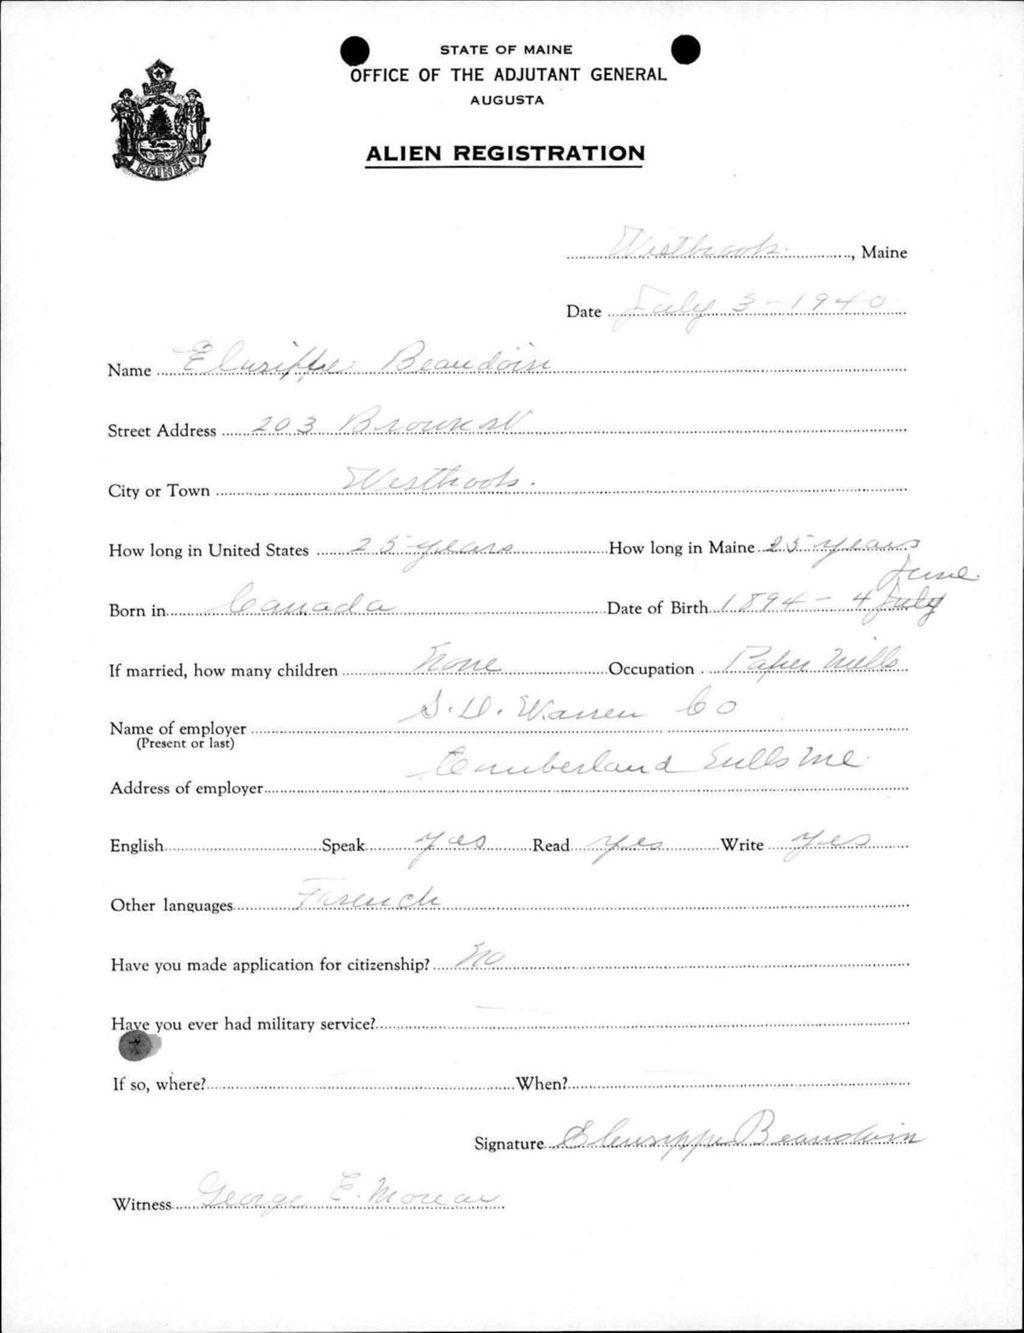 STATE OF MAINE
OFFICE OF THE ADJUTANT GENERAL
AUGUSTA
ALIEN REGISTRATION
MAINE
Westbrook, Maine
Date July 3-1940
Name Elusippe Beaudoin
Street Address 203 Brown st
City or Town Westbrook.
How long in United States 25 years How long in Maine 25 years
June
Born in Canada Date of Birth 1894-4 July
If married, how many children None Occupation Paper Mills
Name of employer S.D. Warren Co
(Present or last)
Address of employer Cumberland Mills Me.
English Speak yes Read yes Write yes
Other languages French
Have you made application for citizenship? No
Have you ever had military service? —
If so, where? When?
Signature Eleusippe Beaudoin
Witness George E. Moreau